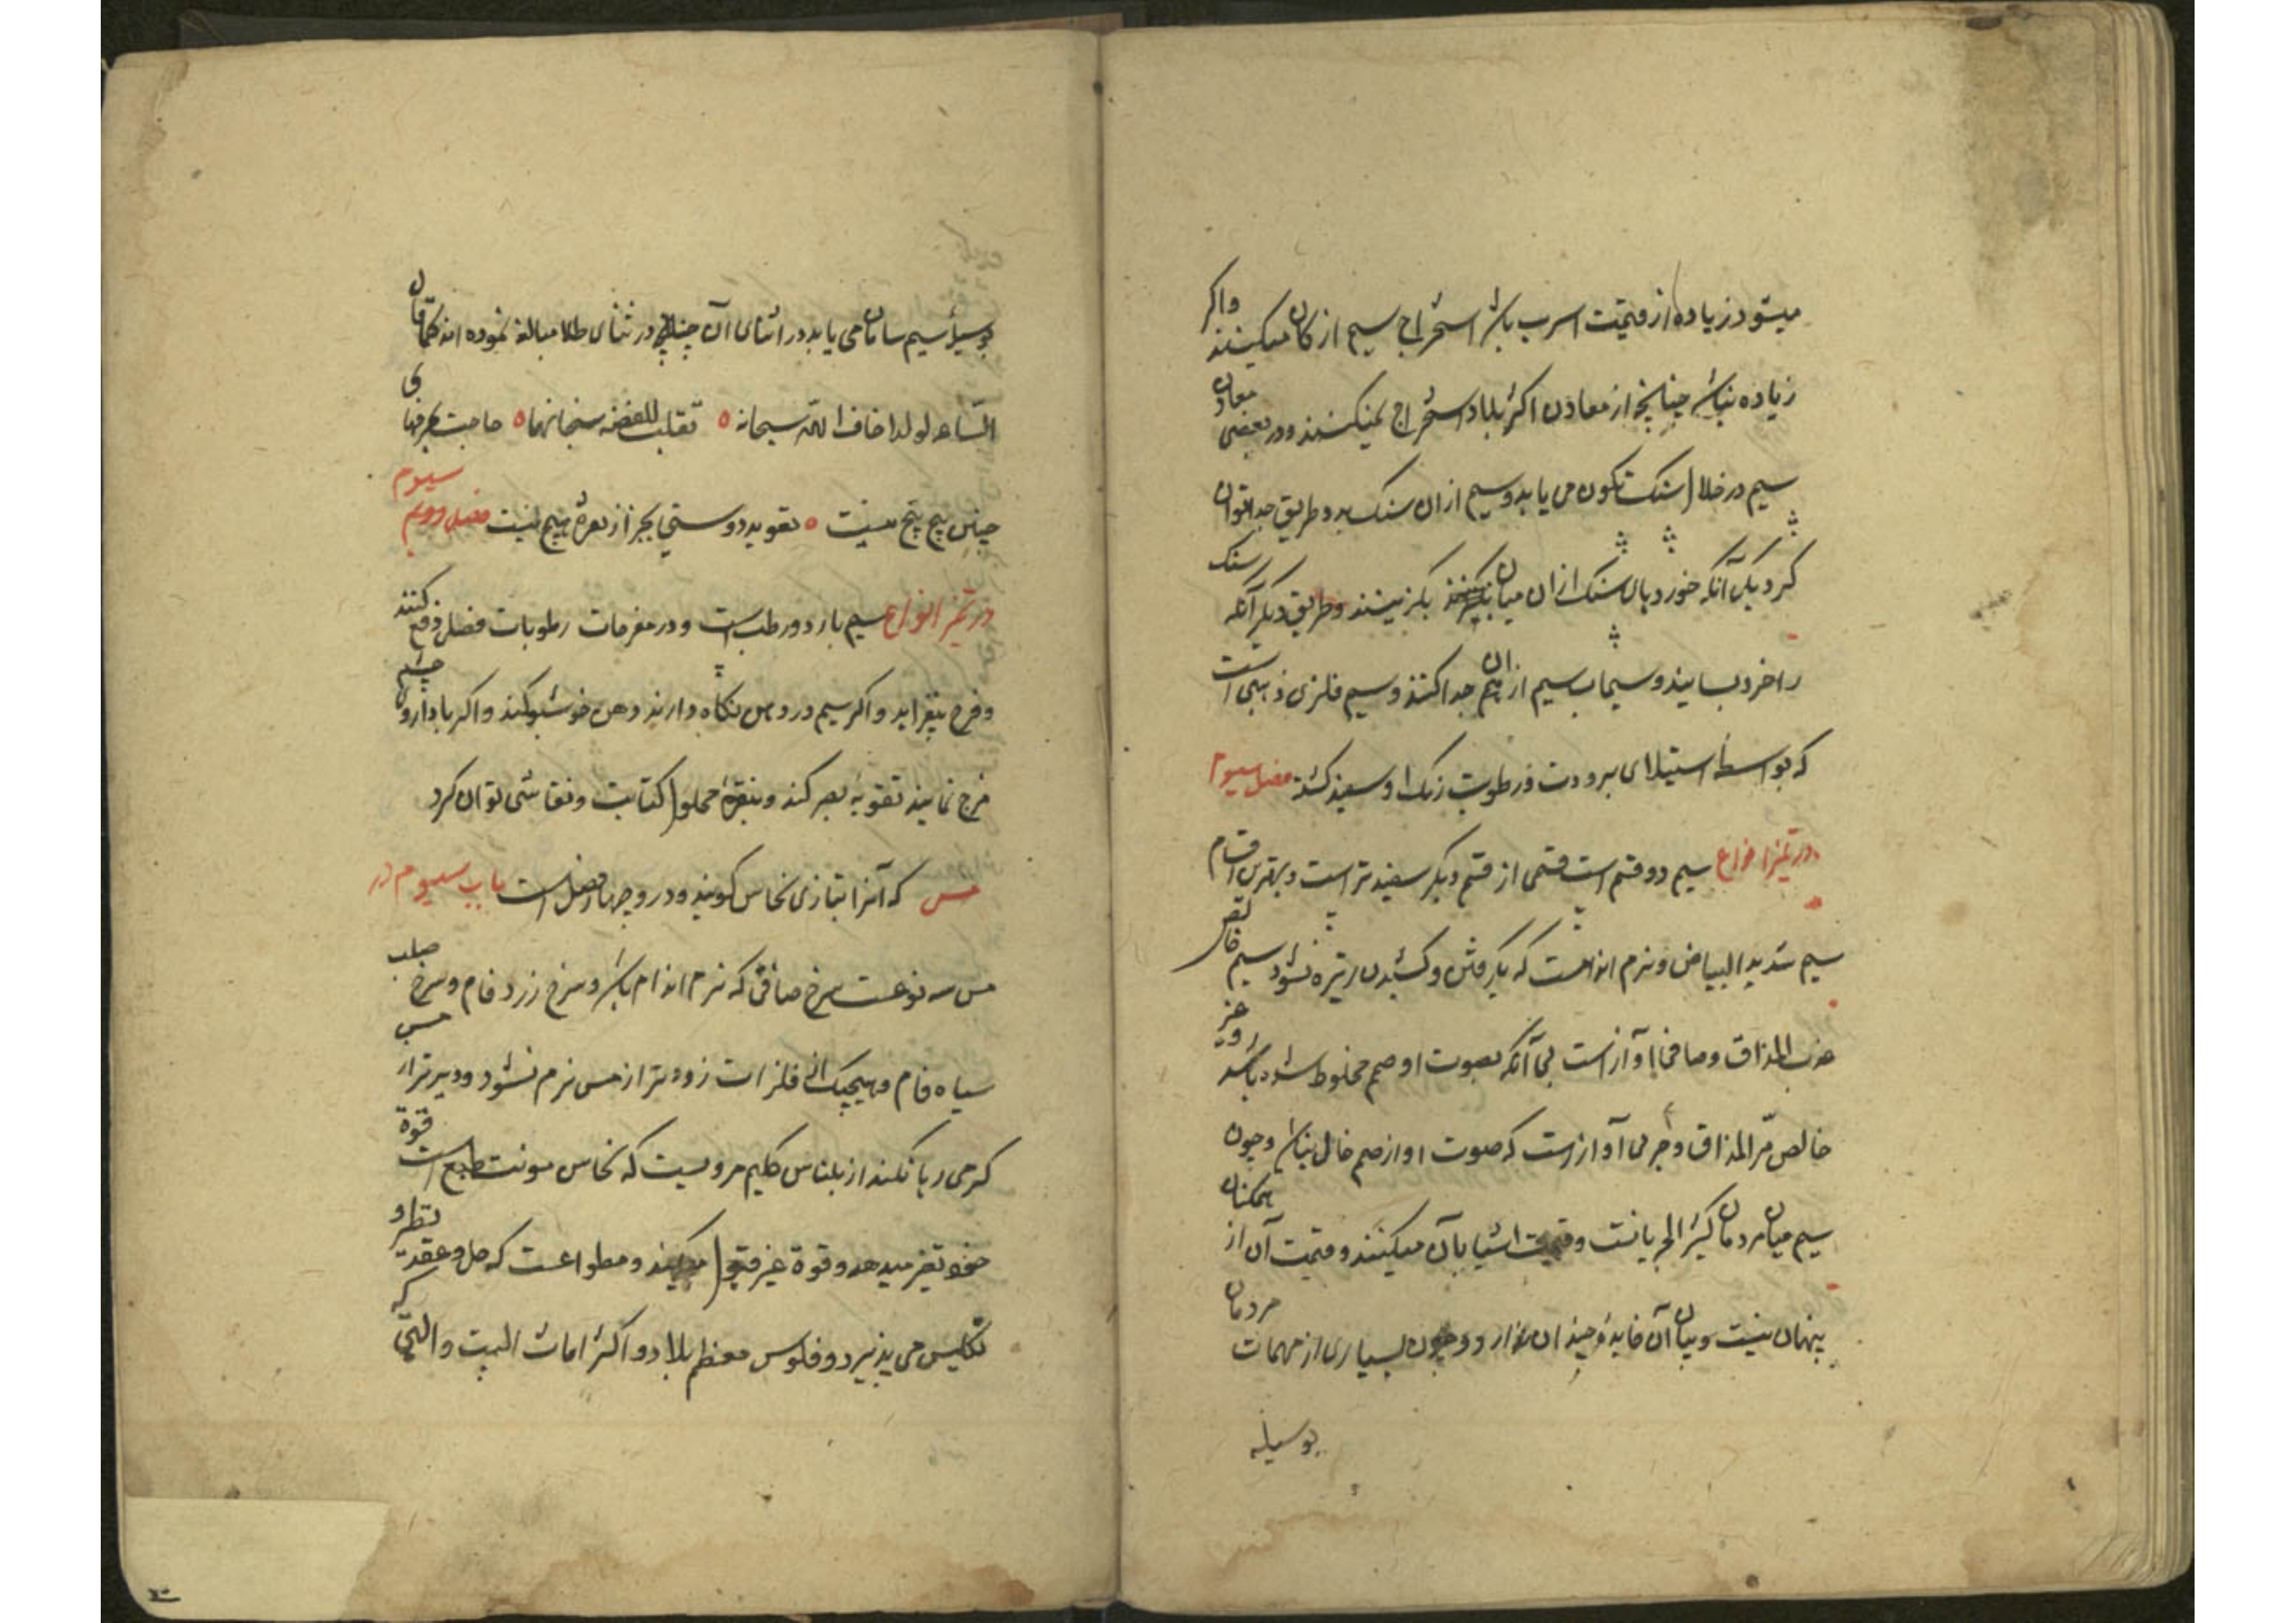 میشود زیاده از قیمت اسرب باشد استخراج سیم از کان میکنند واکر
زیاده نباشد چنانچه از معادن اکثر بلاد استخراج نمیکنند ودر بعضی معادن
سیم در خلال سنک تکون می یابد وسیم از ان سنک بدو طریق جدا توان
کرد یکی آنکه سنک از ان میان بکزینند وطریق دیکر آنکه سنک
را خرد بسایند وسیماب سیم از ان جدا کنند وسیم فلزی ذهبی است
که بواسطه استیلای برودت ورطوبت رنک او سفید کشته فصل سیوم
در تمیز انواع سیم دو قسم است قسمی از قسم دیکر سفیدتر است وبهترین اقسام
سیم شدید البیاض ونرم اندامست که بکرفتن وکشیدن تیره نشود سیم خالص
عذب المذاق وصافی آوازست بی آنکه بصوت او صمم مخلوط شده باشد وغیر
خالص مرّ المذاق و آوازست که صوت او از صمم خالی نباشد وچون
سیم میان مردمان کثیر الجریانست وقیمت اشیا بآن میکنند وقیمت آن از همکنان
پنهان نیست وبیان آن فایدۀ چندان ندارد وچون بسیاری از مهمات مردمان
بوسیله
بوسیلۀ سیم سامان می یابد در اثنای آن چنانچه در ثنای طلا مبالغه نموده اند کما قال
الشاعر لولا اخاف الله سبحانه ٥ لقلت للفضه سبحانها ٥ حاجت
چنین هیچ هیچ نیست ٥ تعویذ دوستی بجز از نقره هیچ نیست فصل سیوم
در تمیز انواع سیم بارد ورطب است ودر مفرحات رطوبات فضلی دفع کنند
وفرح بیفزاید واکر سیم در دهن نکاه دارند دهن خوشبو کند واکر با داروی چشم
مزج نمایند تقویة بصر کند وبنقرۀ محلول کتابت ونقاشی توان کرد
باب سیوم در مس که آنرا بتازی نحاس کویند ودرو چهار فصل است
مس سه نوعست سرخ صافی که نرم اندام باشد وسرخ زرد فام وسرخ صلب
سیاه فام وهیچیک از فلزات زودتر از مس نرم نشود ودیرتر از مس
کرمی رها نکند از بلیناس حکیم مرویست که نحاس مونث طبع است قوة
خود تغیر میدهد وقوة غیر قبول میکند ومطواعست که حل وعقد وتقطیر و
تکلیس می پذیرد وفلوس معظم بلاد واکثر اماث البیت والتی که